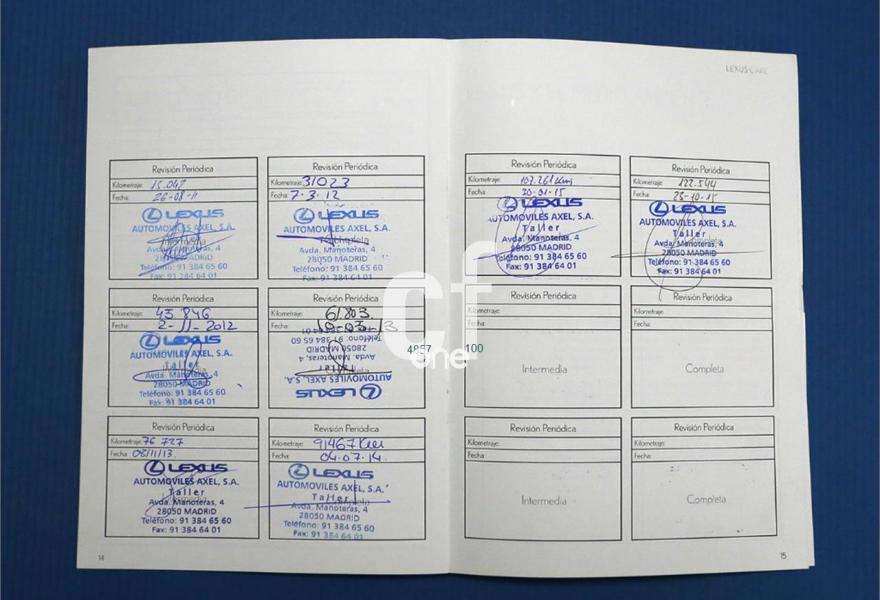 LEXUS CARE
Revisión Periódica
Kilometraje: 15.042
Fecha: 26-08-11
LEXUS
AUTOMOVILES AXEL, S.A.
Avda. Manoteras, 4
28050 MADRID
Teléfono: 91 384 65 60
Fax: 91 384 64 01
Revisión Periódica
Kilometraje: 31023
Fecha: 7-3-12
LEXUS
AUTOMOVILES AXEL, S.A.
Avda. Manoteras, 4
28050 MADRID
Teléfono: 91 384 65 60
Fax: 91 384 64 01
Revisión Periódica
Kilometraje: 107.261 km
Fecha: 20-01-15
LEXUS
AUTOMOVILES AXEL, S.A.
Taller
Avda. Manoteras, 4
28050 MADRID
Teléfono: 91 384 65 60
Fax: 91 384 64 01
Revisión Periódica
Kilometraje: 122.544
Fecha: 23-10-15
LEXUS
AUTOMOVILES AXEL, S.A.
Taller
Avda. Manoteras, 4
28050 MADRID
Teléfono: 91 384 65 60
Fax: 91 384 64 01
Revisión Periódica
Kilometraje: 43.846
Fecha: 2-11-2012
LEXUS
AUTOMOVILES AXEL, S.A.
Taller
Avda. Manoteras, 4
28050 MADRID
Teléfono: 91 384 65 60
Fax: 91 384 64 01
Revisión Periódica
Kilometraje: 61.803
Fecha: 19-03-13
LEXUS
AUTOMOVILES AXEL, S.A.
Taller
Avda. Manoteras, 4
28050 MADRID
Teléfono: 91 384 65 60
Revisión Periódica
Kilometraje:
Fecha:
Intermedia
Revisión Periódica
Kilometraje:
Fecha:
Completa
cf
one
4857 100
Revisión Periódica
Kilometraje: 76 727
Fecha: 08/11/13.
LEXUS
AUTOMOVILES AXEL, S.A.
Taller
Avda. Manoteras, 4
28050 MADRID
Teléfono: 91 384 65 60
Fax: 91 384 64 01
Revisión Periódica
Kilometraje: 91467 Km
Fecha: 04.07.14.
LEXUS
AUTOMOVILES AXEL, S.A.
Taller
Avda. Manoteras, 4
28050 MADRID
Teléfono: 91 384 65 60
Fax: 91 384 64 01
Revisión Periódica
Kilometraje:
Fecha:
Intermedia
Revisión Periódica
Kilometraje:
Fecha:
Completa
14
15